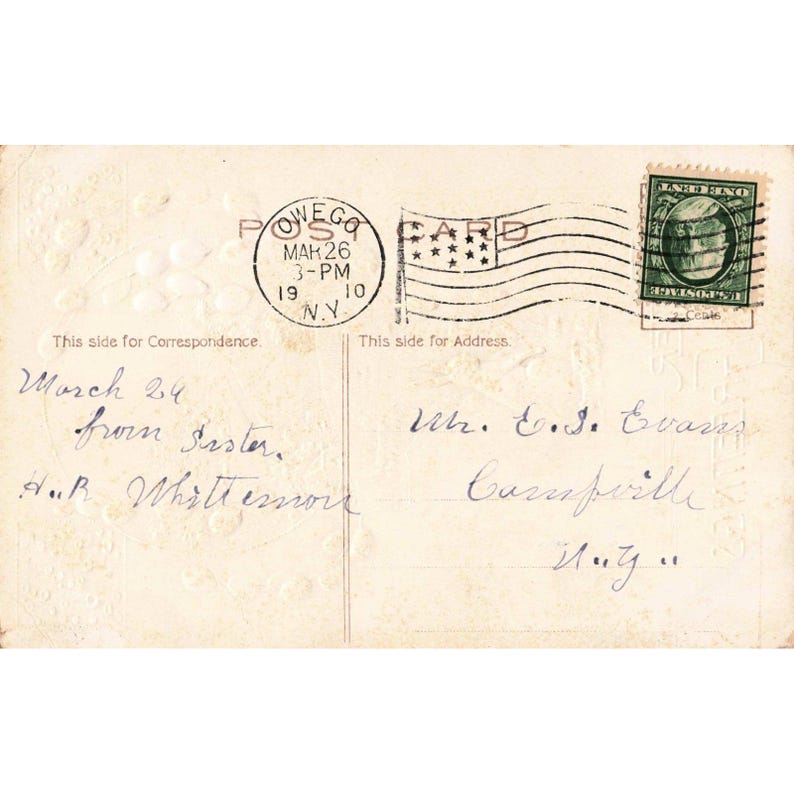 POST CARD
OWEGO
MAR 26
3-PM
1910
N.Y.
ONE CENT
U.S. POSTAGE
2 Cents
This side for Correspondence.
This side for Address.
March 26
from Sister.
H..R Whittemore
Mr. E. S. Evans
Campville
N..Y..